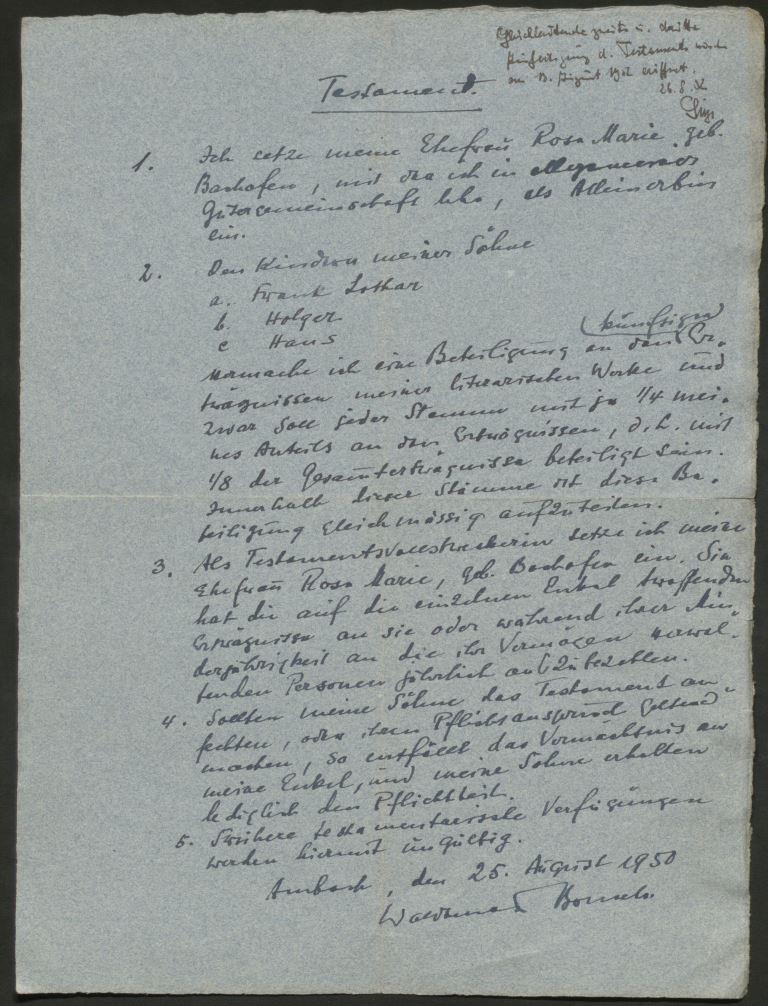 Gleichlautende zweite u. dritte
Ausfertigung d. Testaments wurde
am 13. August 1952 eröffnet.
26.8.
Testament.
1. Ich setze meine Ehefrau Rosa Marie geb.
Bachofen, mit der ich in allgemeiner
Gütergemeinschaft lebe, als Alleinerbin
ein.
2. Den Kindern meiner Söhne
a. Frank Lothar
b. Holger
c Hans
(künftigen)
vermache ich eine Beteiligung an den Er-
trägnissen meiner literarischen Werke und
zwar soll jeder Stamm mit je 1/4 mei-
nes Anteils an den Erträgnissen, d.h. mit
1/8 der Gesamterträgnisse beteiligt sein.
Innerhalb dieser Stämme ist diese Be-
teiligung gleichmässig aufzuteilen.
3. Als Testamentsvollstreckerin setze ich meine
Ehefrau Rosa Marie, geb. Bachofen ein. Sie
hat die auf die einzelnen Enkel treffenden
Erträgnisse an sie oder während ihrer Min-
derjährigkeit an die ihr Vermögen verwal-
tenden Personen jährlich auszubezahlen.
4. Sollten meine Söhne das Testament an
fechten, oder ihren Pflichtanspruch geltend
machen, so entfällt das Vermächtnis an
meine Enkel, und meine Söhne erhalten
lediglich den Pflichtteil.
5. Frühere testamentarische Verfügungen
werden hiermit ungültig.
Ambach, den 25. August 1950
Waldemar Bonsels.